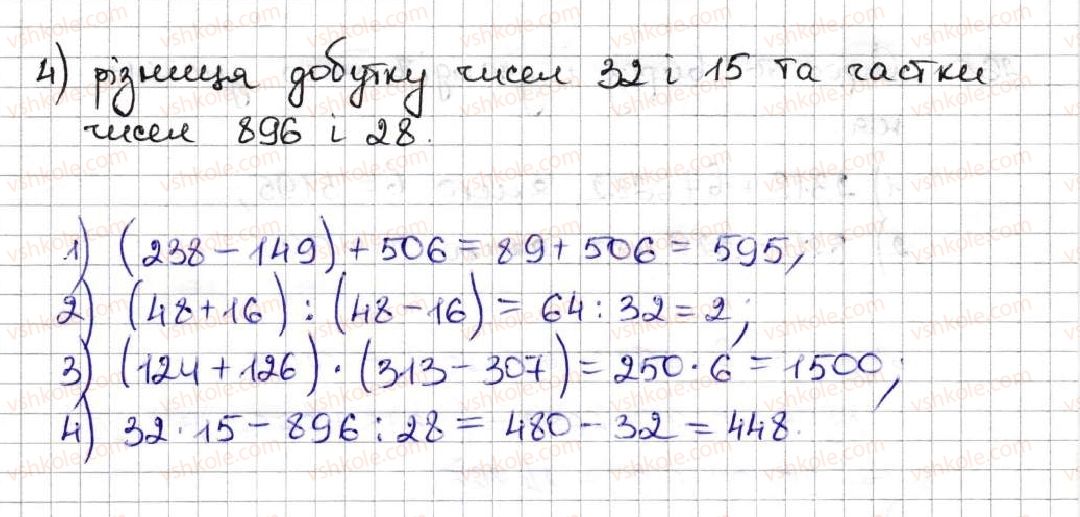 4) різниця добутку чисел 32 і 15 та частки
чисел 896 і 28.
1) (238 - 149) + 506 = 89 + 506 = 595;
2) (48 + 16) : (48 - 16) = 64 : 32 = 2;
3) (124 + 126) · (313 - 307) = 250 · 6 = 1500;
4) 32 · 15 - 896 : 28 = 480 - 32 = 448.